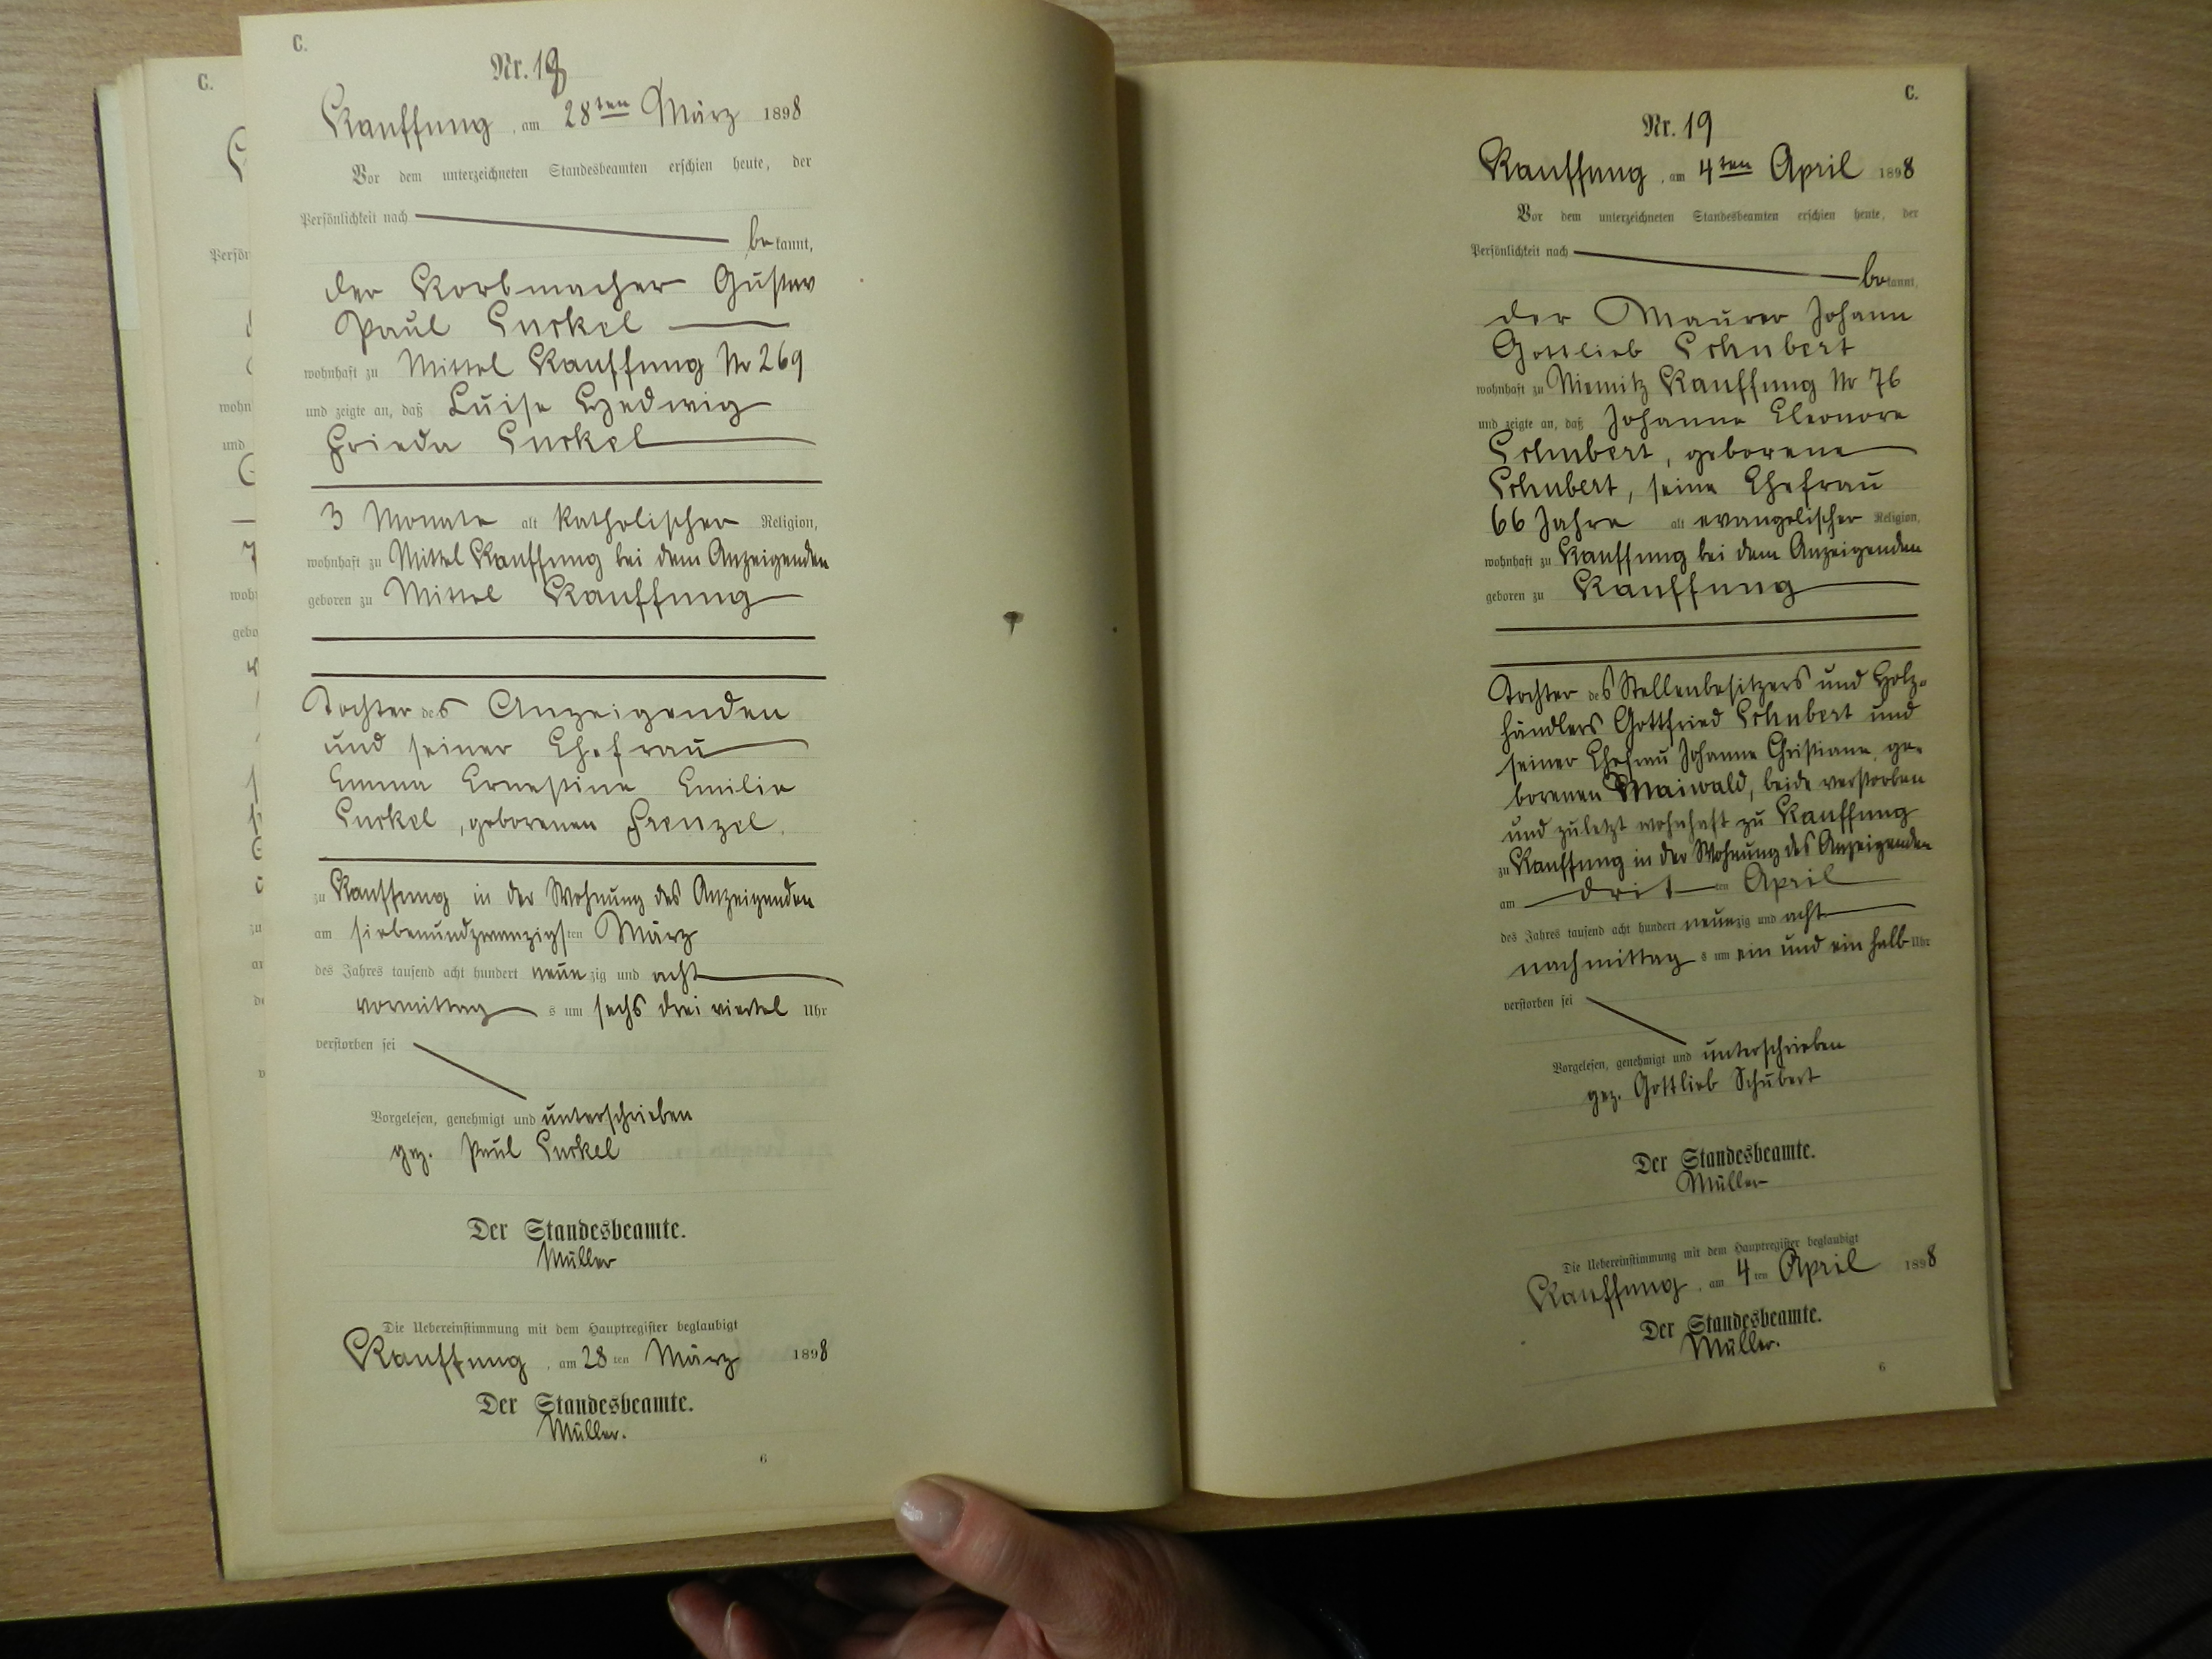 C.
Nr. 18
Kauffung, am 28ten März 1898
Vor dem unterzeichneten Standesbeamten erschien heute, der
Persönlichkeit nach
bekannt,
der Korbmacher Gustav
Paul
wohnhaft zu Mittel Kauffung No 269
und zeigte an, daß Luise Hedwig
Frieda
3 Monate alt katholischer Religion,
wohnhaft zu Mittel Kauffung bei dem Anzeigenden
geboren zu Mittel Kauffung
Tochter des Anzeigenden
und seiner Ehefrau
Emma Ernestine Emilie
geborenen Frenzel.
zu Kauffung in der Wohnung des Anzeigenden
am siebenundzwanzigsten März
des Jahres tausend acht hundert neunzig und acht
vormittags um sechs drei viertel Uhr
verstorben sei
Vorgelesen, genehmigt und unterschrieben
gez. Paul
Der Standesbeamte.
Müller
Die Uebereinstimmung mit dem Hauptregister beglaubigt
Kauffung, am 28ten März 1898
Der Standesbeamte.
Müller.
6
C.
Nr. 19
Kauffung, am 4ten April 1898
Vor dem unterzeichneten Standesbeamten erschien heute, der
Persönlichkeit nach
bekannt,
der Maurer Johann
Gottlieb Schubert
wohnhaft zu Niemitz Kauffung No 76
und zeigte an, daß Johanne Eleonore
Schubert, geborene
Schubert, seine Ehefrau
66 Jahre alt evangelischer Religion,
wohnhaft zu Kauffung bei dem Anzeigenden
geboren zu Kauffung
Tochter des Stellenbesitzers und Holz-
händlers Gottfried Schubert und
seiner Ehefrau Johanne Christiane ge-
borenen Maiwald, beide verstorben
und zuletzt wohnhaft zu Kauffung
zu Kauffung in der Wohnung des Anzeigenden
am dritten April
des Jahres tausend acht hundert neunzig und acht
nachmittags um ein und ein halb Uhr
verstorben sei
Vorgelesen, genehmigt und unterschrieben
gez. Gottlieb Schubert
Der Standesbeamte.
Müller
Die Uebereinstimmung mit dem Hauptregister beglaubigt
Kauffung, am 4ten April 1898
Der Standesbeamte.
Müller.
6